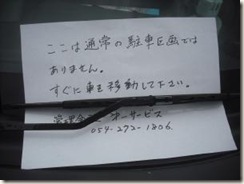 ここは通常の駐車区画では
ありません。
すぐに車を移動して下さい。
管理会社 サービス
054-272-1806